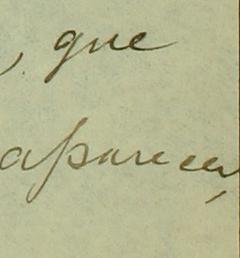 , que
aparecer,